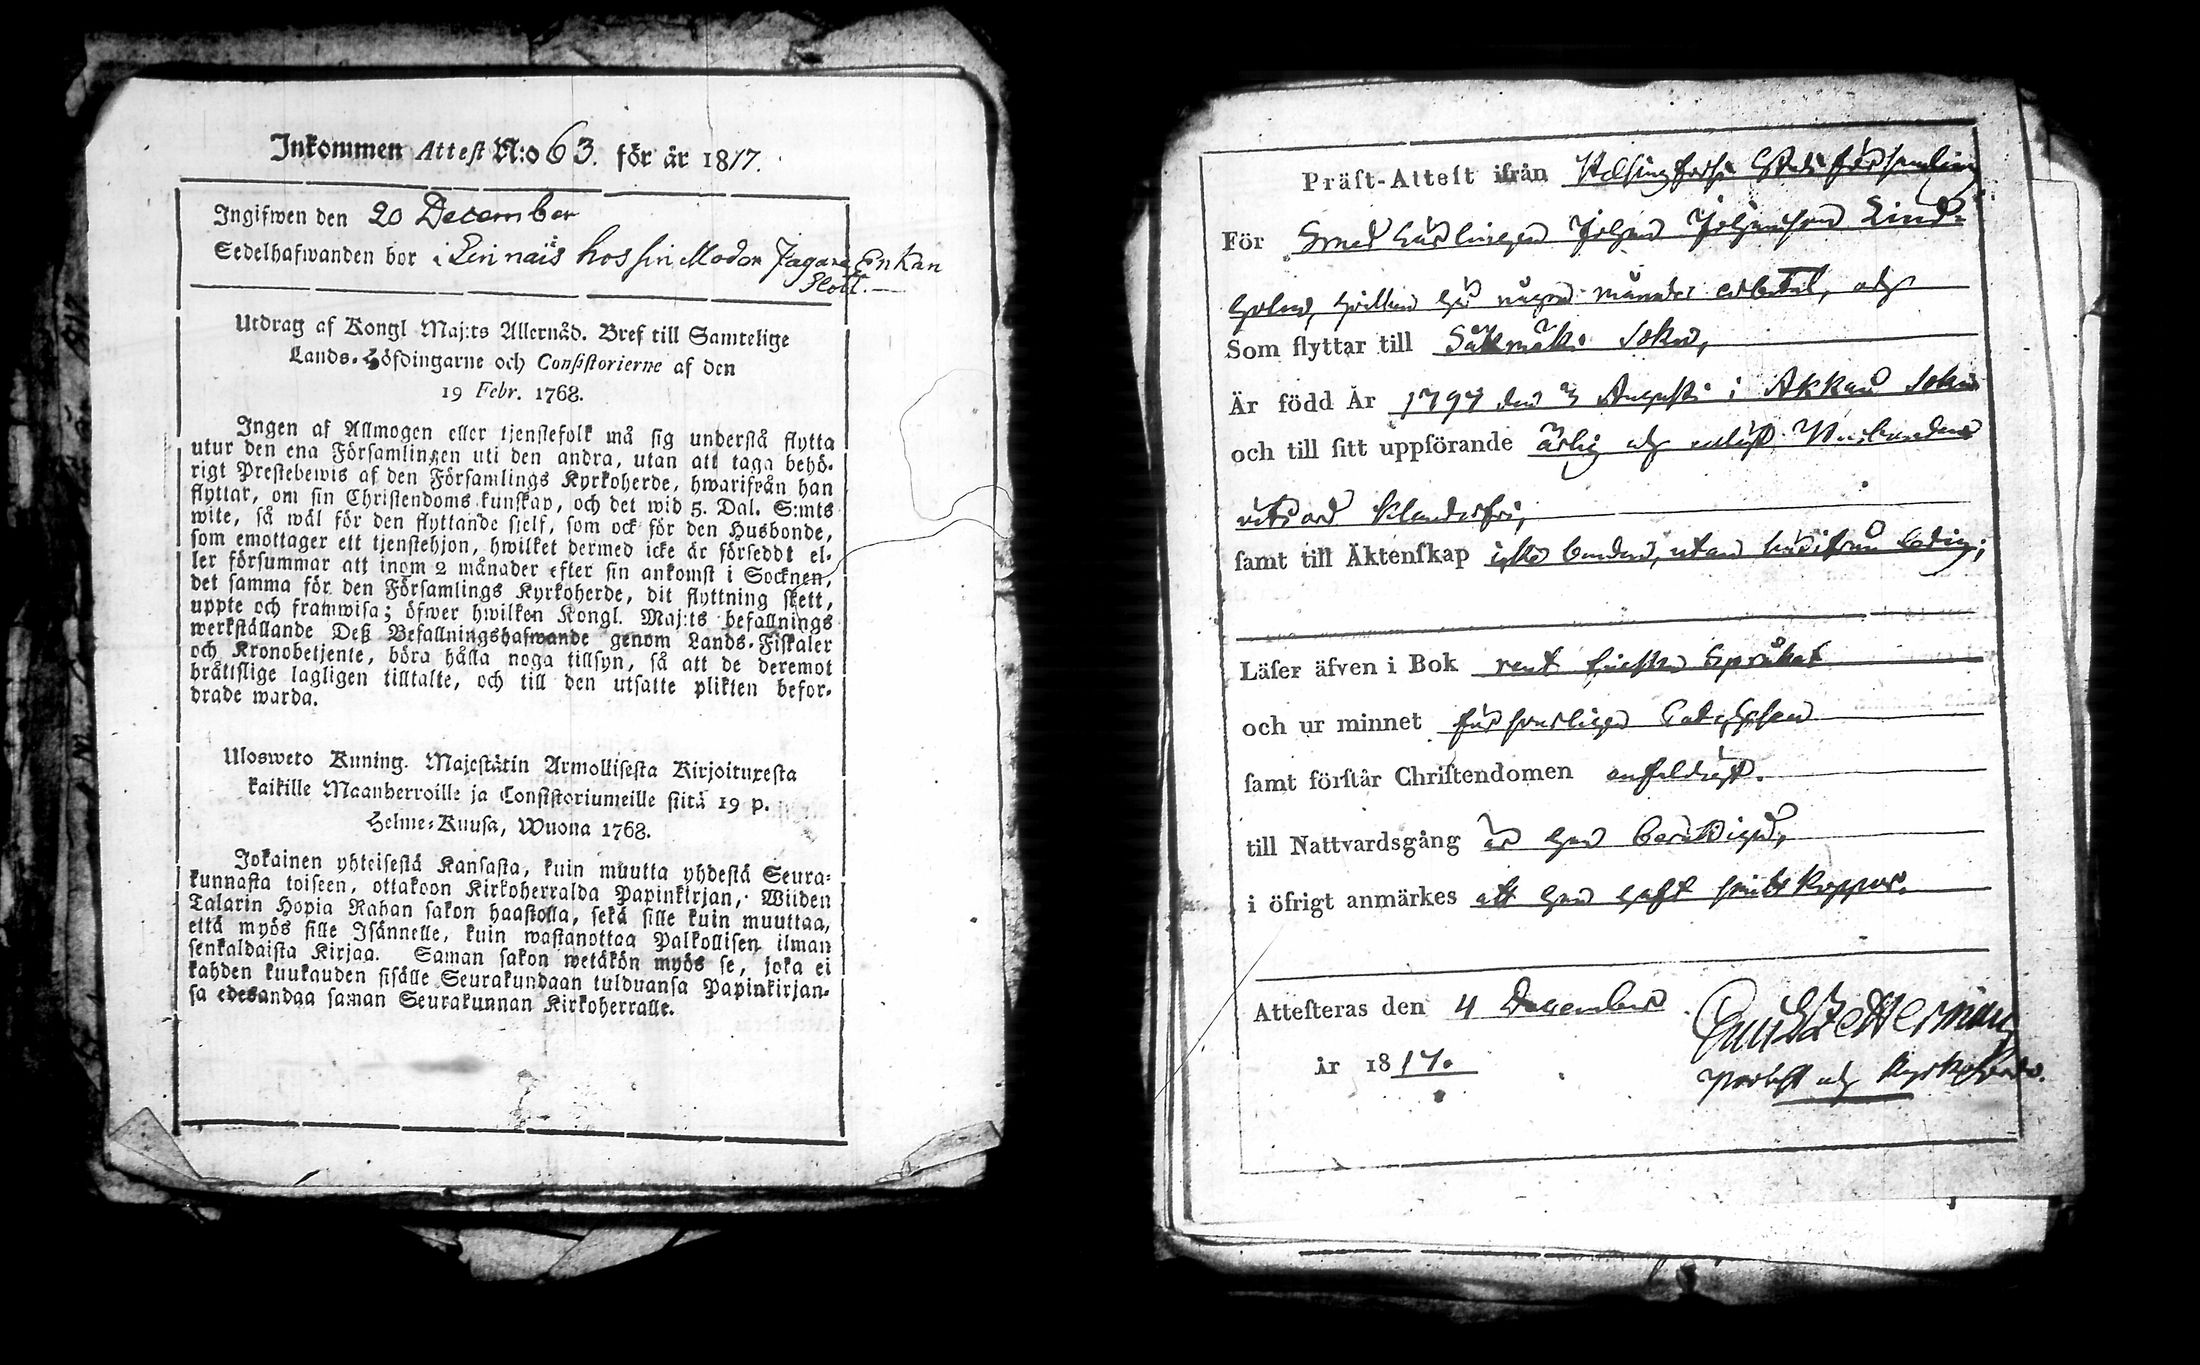 Inkommen Attest N:o 63. för år 1817.
Ingifwen den 20 December
Sedelhafwanden bor i Linnais hos sin Moder Jagare Enkan
Flott.
Utdrag af Kongl Maj:ts Allernåd. Bref till Samtelige
Lands-Höfdingarne och Consistorierne af den
19 Febr. 1768.
Ingen af Allmogen eller tjenstefolk må sig understå flytta
utur den ena Församlingen uti den andra, utan att taga behö-
rigt Prestebewis af den Församlings Kyrkoherde, hwarifrån han
flyttar, om sin Christendoms kunskap, och det wid 5. Dal. S:mts
wite, så wäl för den flyttande sielf, som ock för den Husbonde,
som emottager ett tjenstehjon, hwilket dermed icke är förseddt el-
ler försummar att inom 2 månader efter sin ankomst i Socknen,
det samma för den Församlings Kyrkoherde, dit flyttning skett,
uppte och framwisa; öfwer hwilken Kongl. Maj:ts befallnings
werkställande Deß Befallningshafwande genom Lands-Fiskaler
och Kronobetjente, böra hålla noga tillsyn, så att de deremot
bråttslige lagligen tilltalte, och till den utsatte plikten befor-
drade warda.
Ulosweto Kuning. Majestätin Armollisesta Kirjoituxesta
kaikille Maanherroille ja Consistoriumeille siitä 19 p.
Helme-Kuusa, Wuona 1768.
Jokainen yhteisestä Kansasta, kuin muutta yhdestä Seura-
kunnasta toiseen, ottakoon Kirkoherralda Papinkirjan, Wiiden
Talarin Hopia Rahan sakon haastolla, sekä sille kuin muuttaa,
että myös sille Isännelle, kuin wastanottaa Palkollisen ilman
senkaldaista Kirjaa. Saman sakon wetäkön myös se, joka ei
kahden kuukauden sisälle Seurakundaan tulduansa Papinkirjan-
sa edesandaa saman Seurakunnan Kirkoherralle.
Präst-Attest ifrån Helsingfors Stads församling
För Smed Lärlingen Johan Johansson Lind-
holm, hvilken här någon månader arbetat, och
Som flyttar till Säkmäki Sokn,
Är född År 1797 den 3 Augusti i Akkas Sokn
och till sitt uppförande ärlig och enligt Husbondens
vitsord klanderfri,
samt till Äktenskap icke bunden, utan härifrån ledig;
Läser äfven i Bok rent finska Språket
och ur minnet försvarligen Catechesen
samt förstår Christendomen enfaldigt.
till Nattvardsgång är han berättigad,
i öfrigt anmärkes att han haft smittkoppor.
Attesteras den 4 December
år 1817.
Zetterman
Probst och Kyrkoherde.